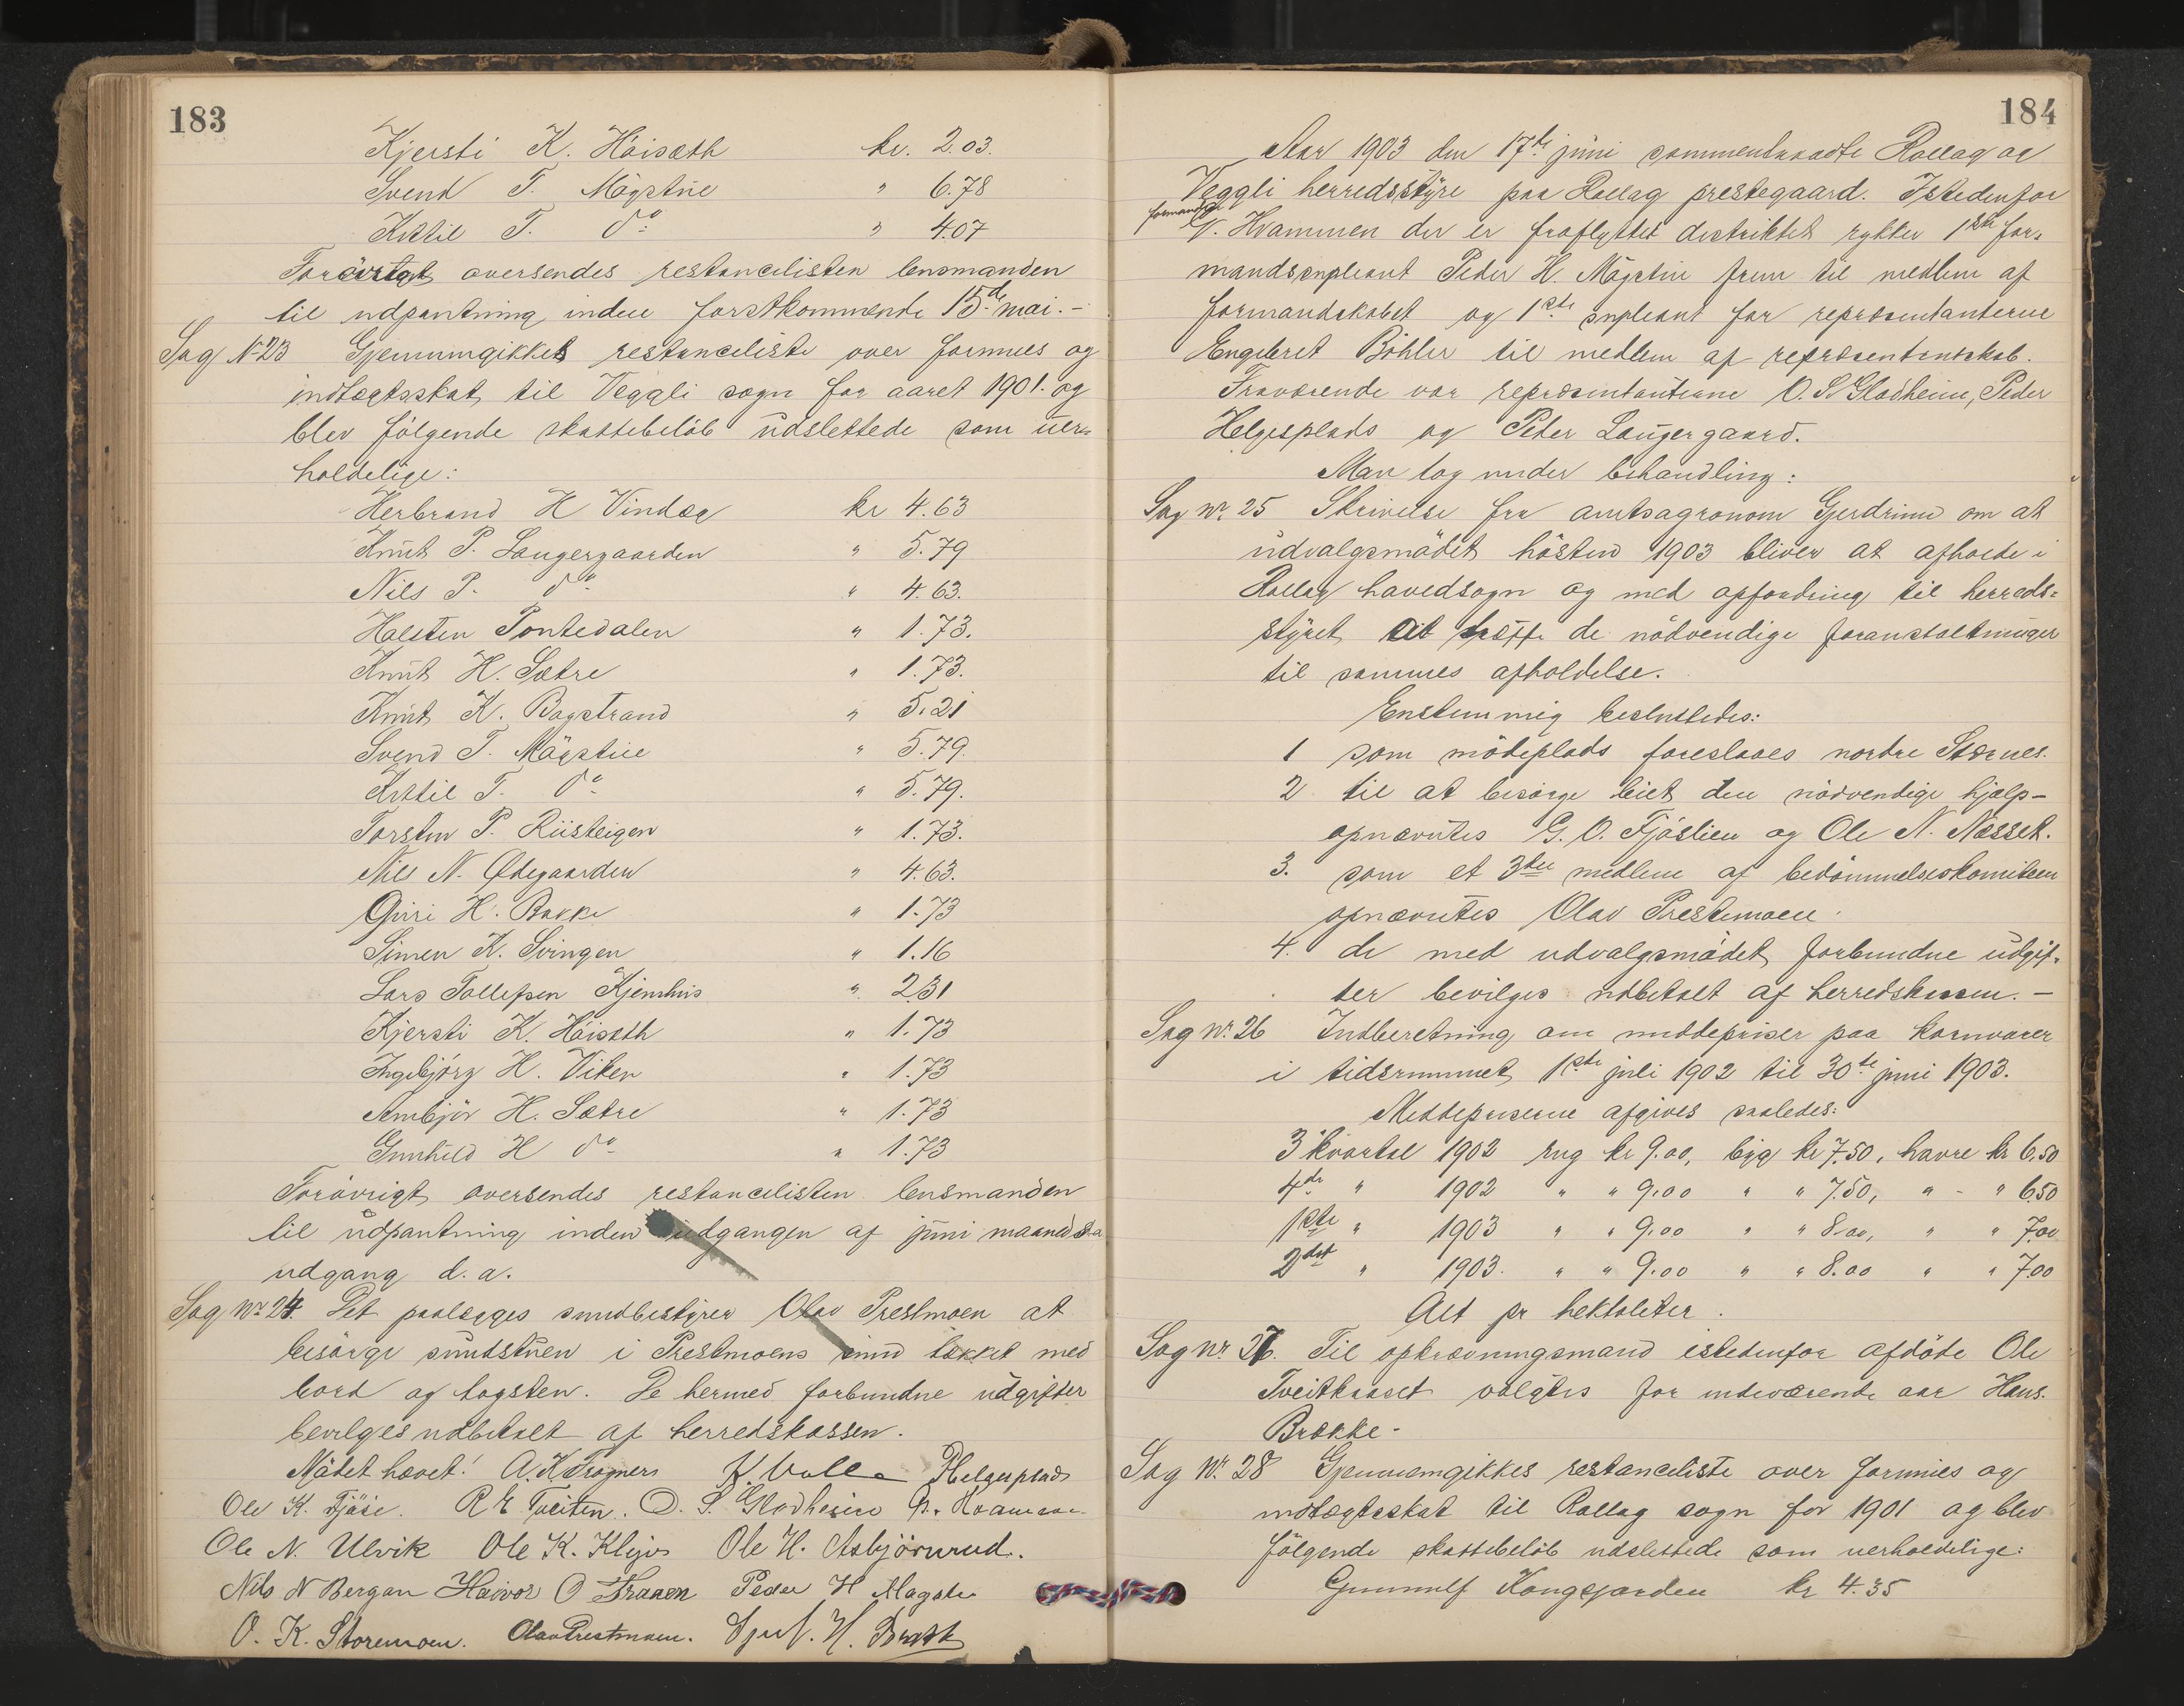 183
Kjersti K. Höisæth kr. 2.03.
Svend T. Mögstue " 6.78
Kittil T. do " 4.07
Forövrigt oversendes restancelisten lensmanden
til udpantning inden förstkommende 15de mai. -
Sag No 23 Gjennemgikkes restanceliste over formues og
indtægtsskat til Veggli sogn for aaret 1901. og
blev fölgende skattebelöb udslettede som uer=
holdelige:
Herbrand H Vindeg kr 4.63
Knut P. Laugergaarden " 5.79
Nils P. do " 4.63.
Halsten Pontedalen " 1.73.
Knut H. Sætre " 1.73.
Knut K. Bagstrand " 5.21
Svend T. Mögstue " 5.79.
Kittil T. do " 5.79.
Torsten P. Riisteigen " 1.73.
Nils N. Ødegaarden " 4.63.
Guri H. Bakke " 1.73
Simen K. Svingen " 1.16
Lars Tollefsen Kjemhus " 2.31
Kjersti K. Höisæth " 1.73
Ingebjörg H. Viken " 1.73
Armbjör H. Sætre " 1.73
Gunhild H do " 1.73
Forövrigt oversendes restancelisten lensmanden
til udpantning inden udgangen af juni maaneds
udgang d.a.
Sag No 24. Det paalægges sundbestyrer Olav Prestmoen at
besörge sundstuen i Prestmoens sund tækket med
bord og tagsten. De hermed forbundne udgifter
bevilges udbetalt af herredskassen.
Mödet hævet! A. K. Trogners K. Valle P Helgeplads
Ole K. Fjöse. R E Tveiten. O. S. Gladheim N. Hvammen
Ole N. Ulvik Ole K. Klejvs Ole H. Asbjörnrud.
Nils N Bergan Haivor O Traaen Peder H Mögstu
O. K. Storemoen. Olav Prestmoen. H. Bratt
184
Aar 1903 den 17de juni sammentraadte Rollag og
Veggli herredsstyre paa Rollag prestegaard. Istedenfor
formand
N. Hvammen der er fraflyttet distriktet rykker 1ste for=
mandssupleant Peder H. Mögstue frem til medlem af
formandskabet og 1ste supleant for repræsentanterne
Engebret Böhler til medlem af repræsentantskab.
Fraværende var repræsentanterne O. S Gladheim, Peder
Helgesplads og Peder Laugergaard.
Man tog under behandling:
Sag No 25 Skrivelse fra amtsagronom Gjerdrum om at
udvalgsmödet hösten 1903 bliver at afholde i
Rollag hovedsogn og med opfordring til herreds=
styret at træffe de nödvendige foranstaltninger
til sammes afholdelse.
Enstemmig besluttedes:
1 som mödeplads foreslaaes nordre Stærnes.
2 til at besörge leiet den nödvendige hjælp -
opnævntes G. O. Fjöslien og Ole N. Næsset.
3. som et 3die medlem af bedömmelseskomiteen
opnævntes Olav Prestemoen.
4. de med udvalgsmödet forbundne udgif=
ter bevilges udbetalt af herredskassen. -
Sag No 26 Indberetning om middepriser paa kornvarer
i tidsrummet 1ste juli 1902 til 30te juni 1903.
Middepriserne afgives saaledes:
3 kvartal 1902 rug kr 9.00, byg kr 7.50, havre kr 6.50
4de " 1902 " " 9.00 " " 7.50, " - " 6.50
1ste " 1903 " " 9.00 " " 8.00, " " 7.00
2det " 1903. " " 9.00 " " 8.00 " " 7.00
Alt pr hektoliter.
Sag No 27. Til opkrævningsmand istedenfor afdöde Ole
Tveitkaaset valgtes for indeværende aar Hans.
Brække -
Sag No 28 Gjennemgikkes restanceliste over formues og
indtægtsskat til Rollag sogn for 1901 og blev
fölgende skattebelöb udslettede som uerholdelige:
Gunnulf Kongsjorden kr 4.35